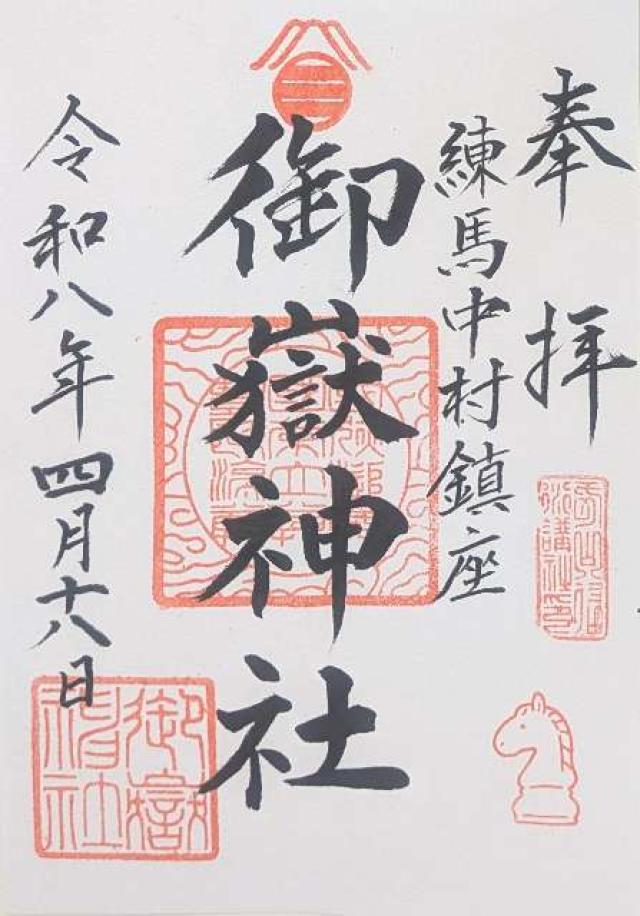 奉拝
練馬中村鎮座
御嶽神社
令和八年四月十八日
御嶽神社